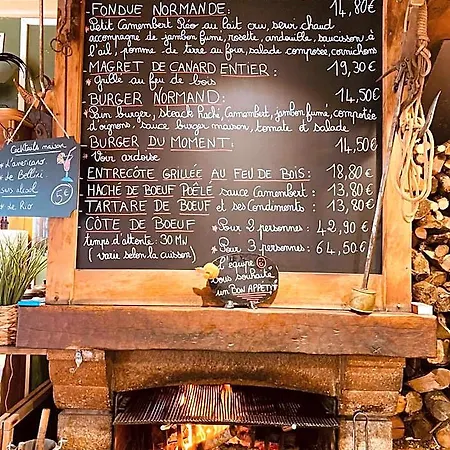 FONDUE NORMANDE: 14,80€
Petit Camembert Réo au lait cru, servi chaud
accompagné de jambon fumé, rosette, andouille, saucisson à
l'ail, pomme de terre au four, salade composée, cornichons
MAGRET DE CANARD ENTIER: 19,30€
* Grillé au feu de bois
BURGER NORMAND: 14,50€
*Pain burger, steack Haché, Camembert, jambon fumé, compotée
d'oignons, sauce burger maison, tomate et salade
BURGER DU MOMENT: 14,50€
* Voir ardoise
ENTRECÔTE GRILLÉE AU FEU DE BOIS: 18,80€
HACHÉ DE BOEUF POÊLÉ sauce Camembert: 13,80€
TARTARE DE BOEUF et ses Condiments: 13,80€
CÔTE DE BOEUF *Pour 2 personnes: 42,90€
temps d'attente: 30 MN
*Pour 3 personnes: 64,50€
( varie selon la cuisson)
Cocktails maison
L'américano
de Bellini
sans alcool
de Rio
5€
L'équipe
Vous souhaite
un BON APPÉTIT